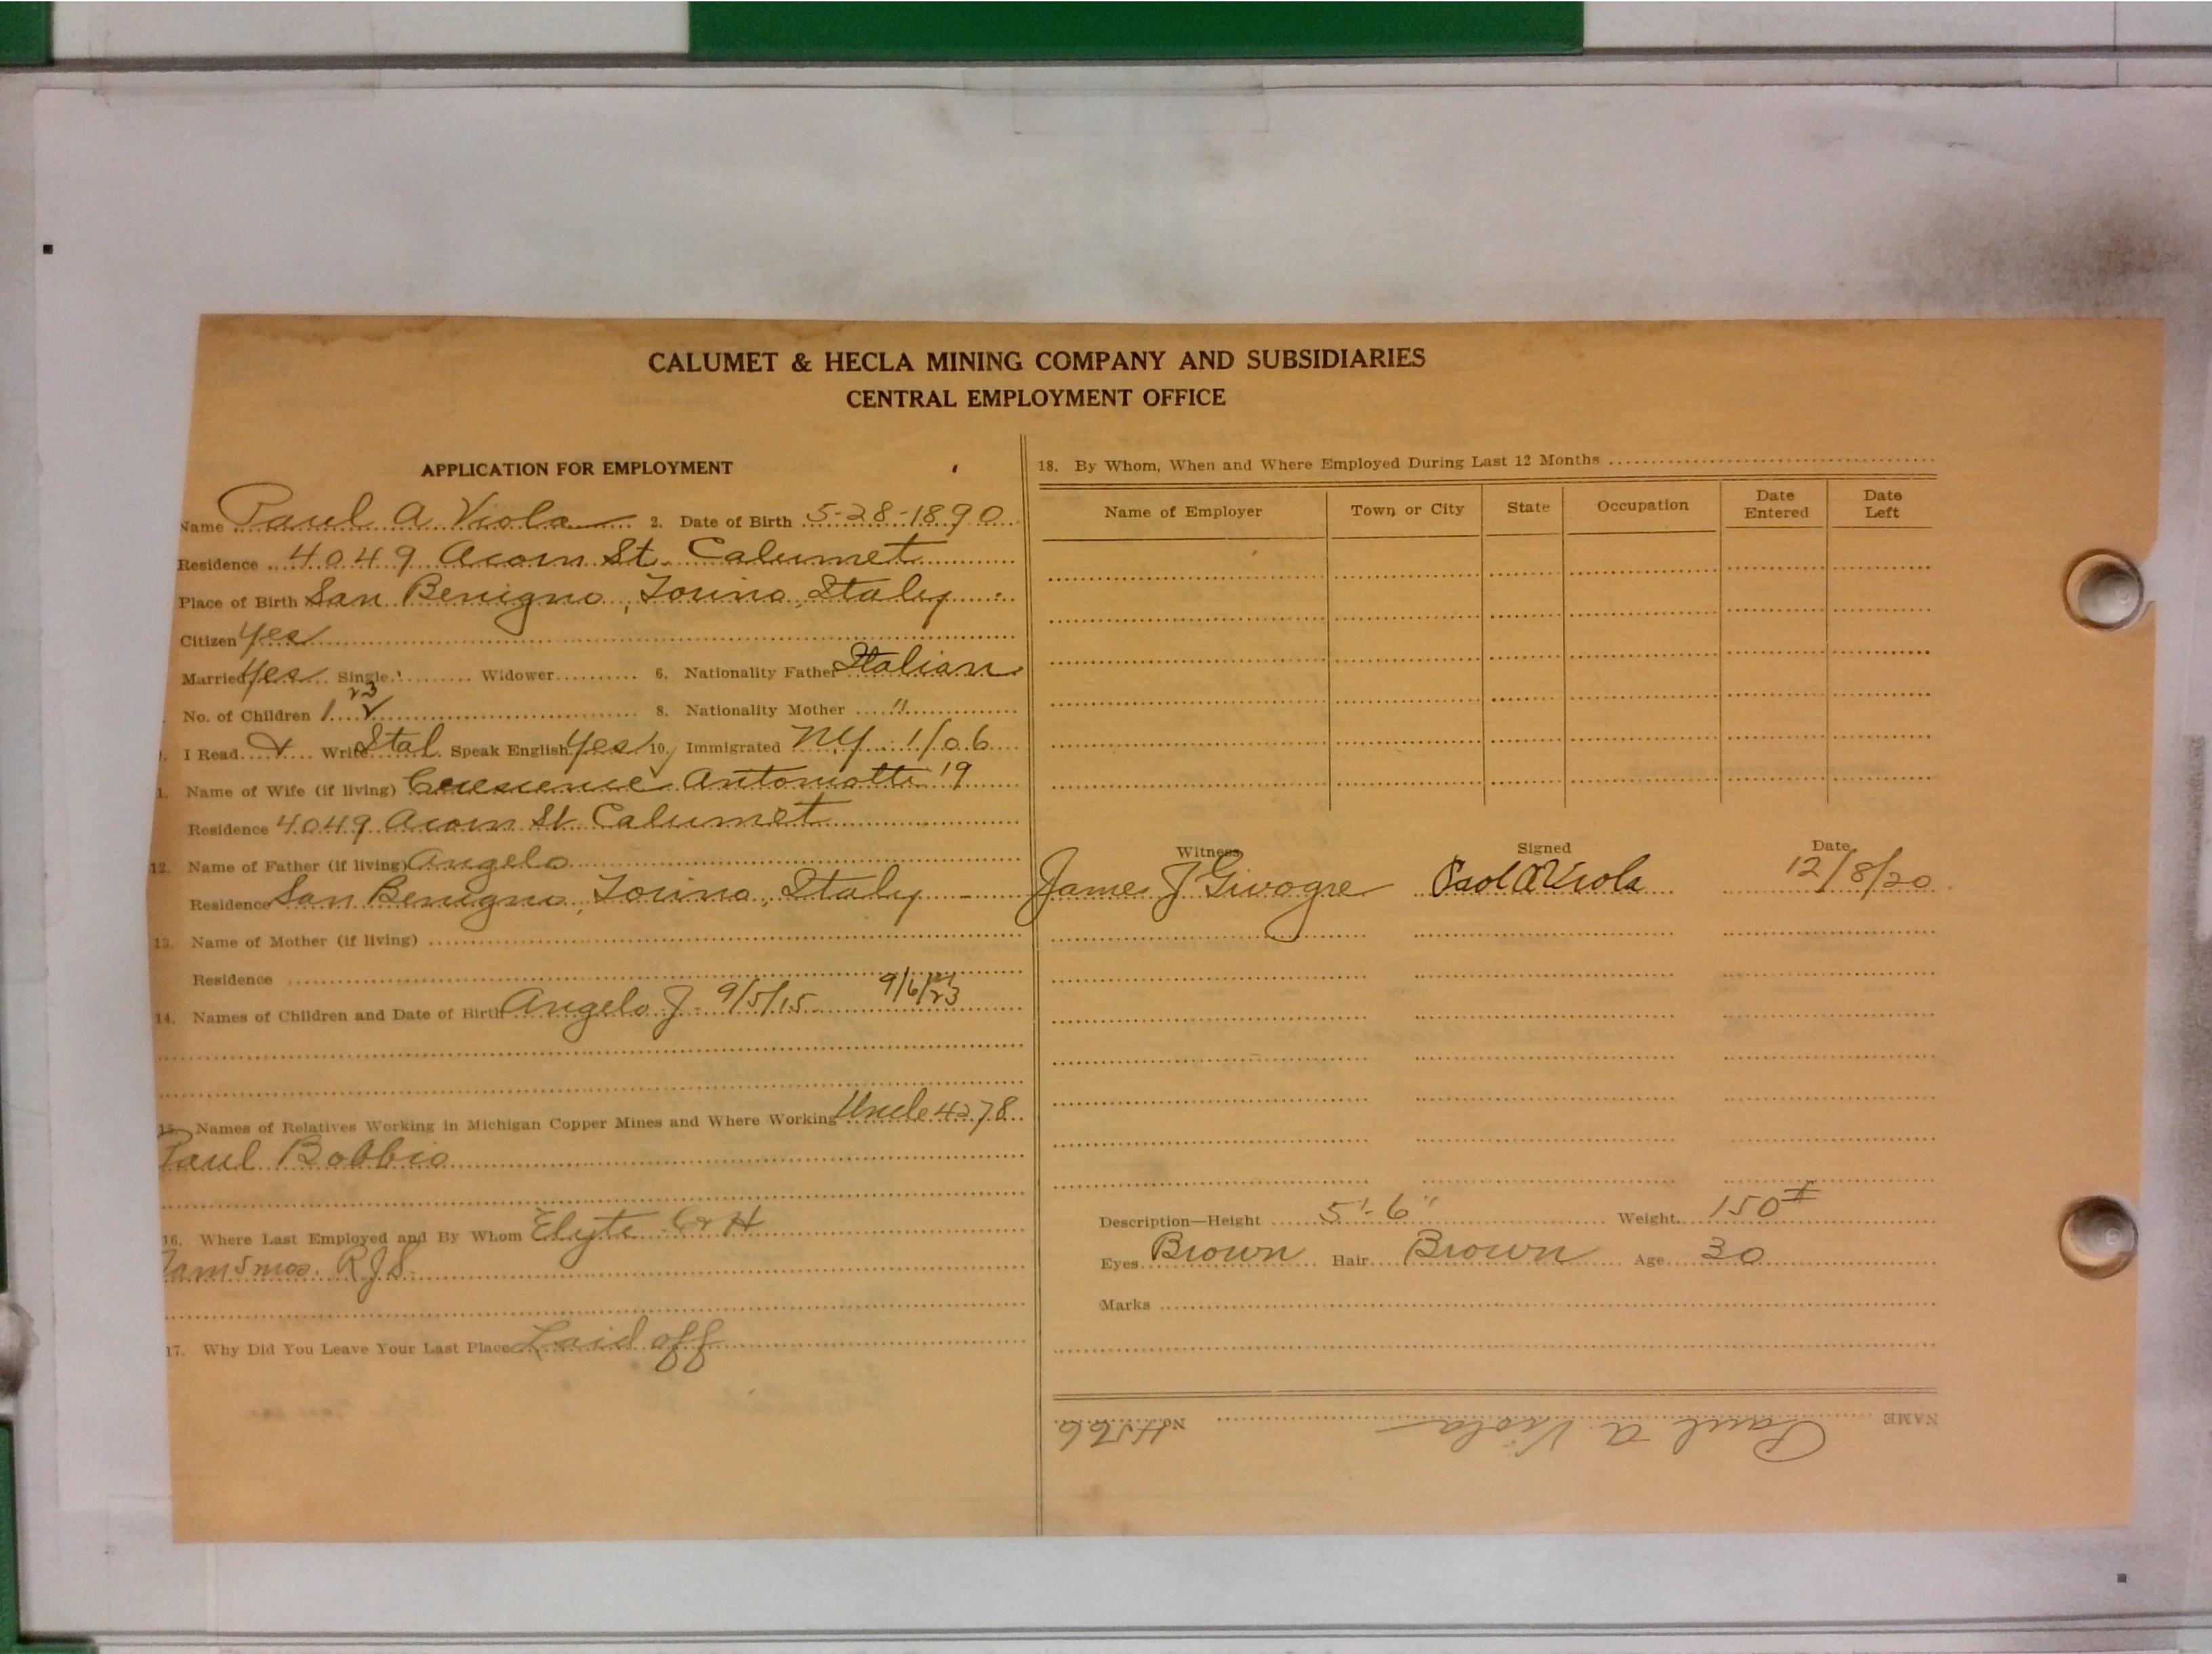 CALUMET & HECLA MINING COMPANY AND SUBSIDIARIES
CENTRAL EMPLOYMENT OFFICE
APPLICATION FOR EMPLOYMENT
Name Paul A Viola 2. Date of Birth 5-28-1890
Residence 4049 Acorn St. Calumet
Place of Birth San Benigno, Torino, Italy
Citizen Yes
Married Yes Single Widower 6. Nationality Father Italian
No. of Children 1 2 3 8. Nationality Mother "
I Read & Write Ital. Speak English Yes 10. Immigrated NY 1/06
1. Name of Wife (if living) Antoniotti '19
Residence 4049 Acorn St Calumet
12. Name of Father (if living) Angelo
Residence San Benigno, Torino, Italy
13. Name of Mother (if living)
Residence
14. Names of Children and Date of Birth Angelo J- 9/5/15 9/6/23
15. Names of Relatives Working in Michigan Copper Mines and Where Working Uncle 4278
Paul Bobbio
16. Where Last Employed and By Whom Elyte C & H
5 mos. R.J.S.
17. Why Did You Leave Your Last Place Laid off
18. By Whom, When and Where Employed During Last 12 Months
Name of Employer Town or City State Occupation Date Entered Date Left
Witness Signed Date
James J Givogre Paol A Viola 12/8/20
Description—Height 5'-6" Weight 150#
Eyes Brown Hair Brown Age 30
Marks
NAME Paul A Viola No. H566